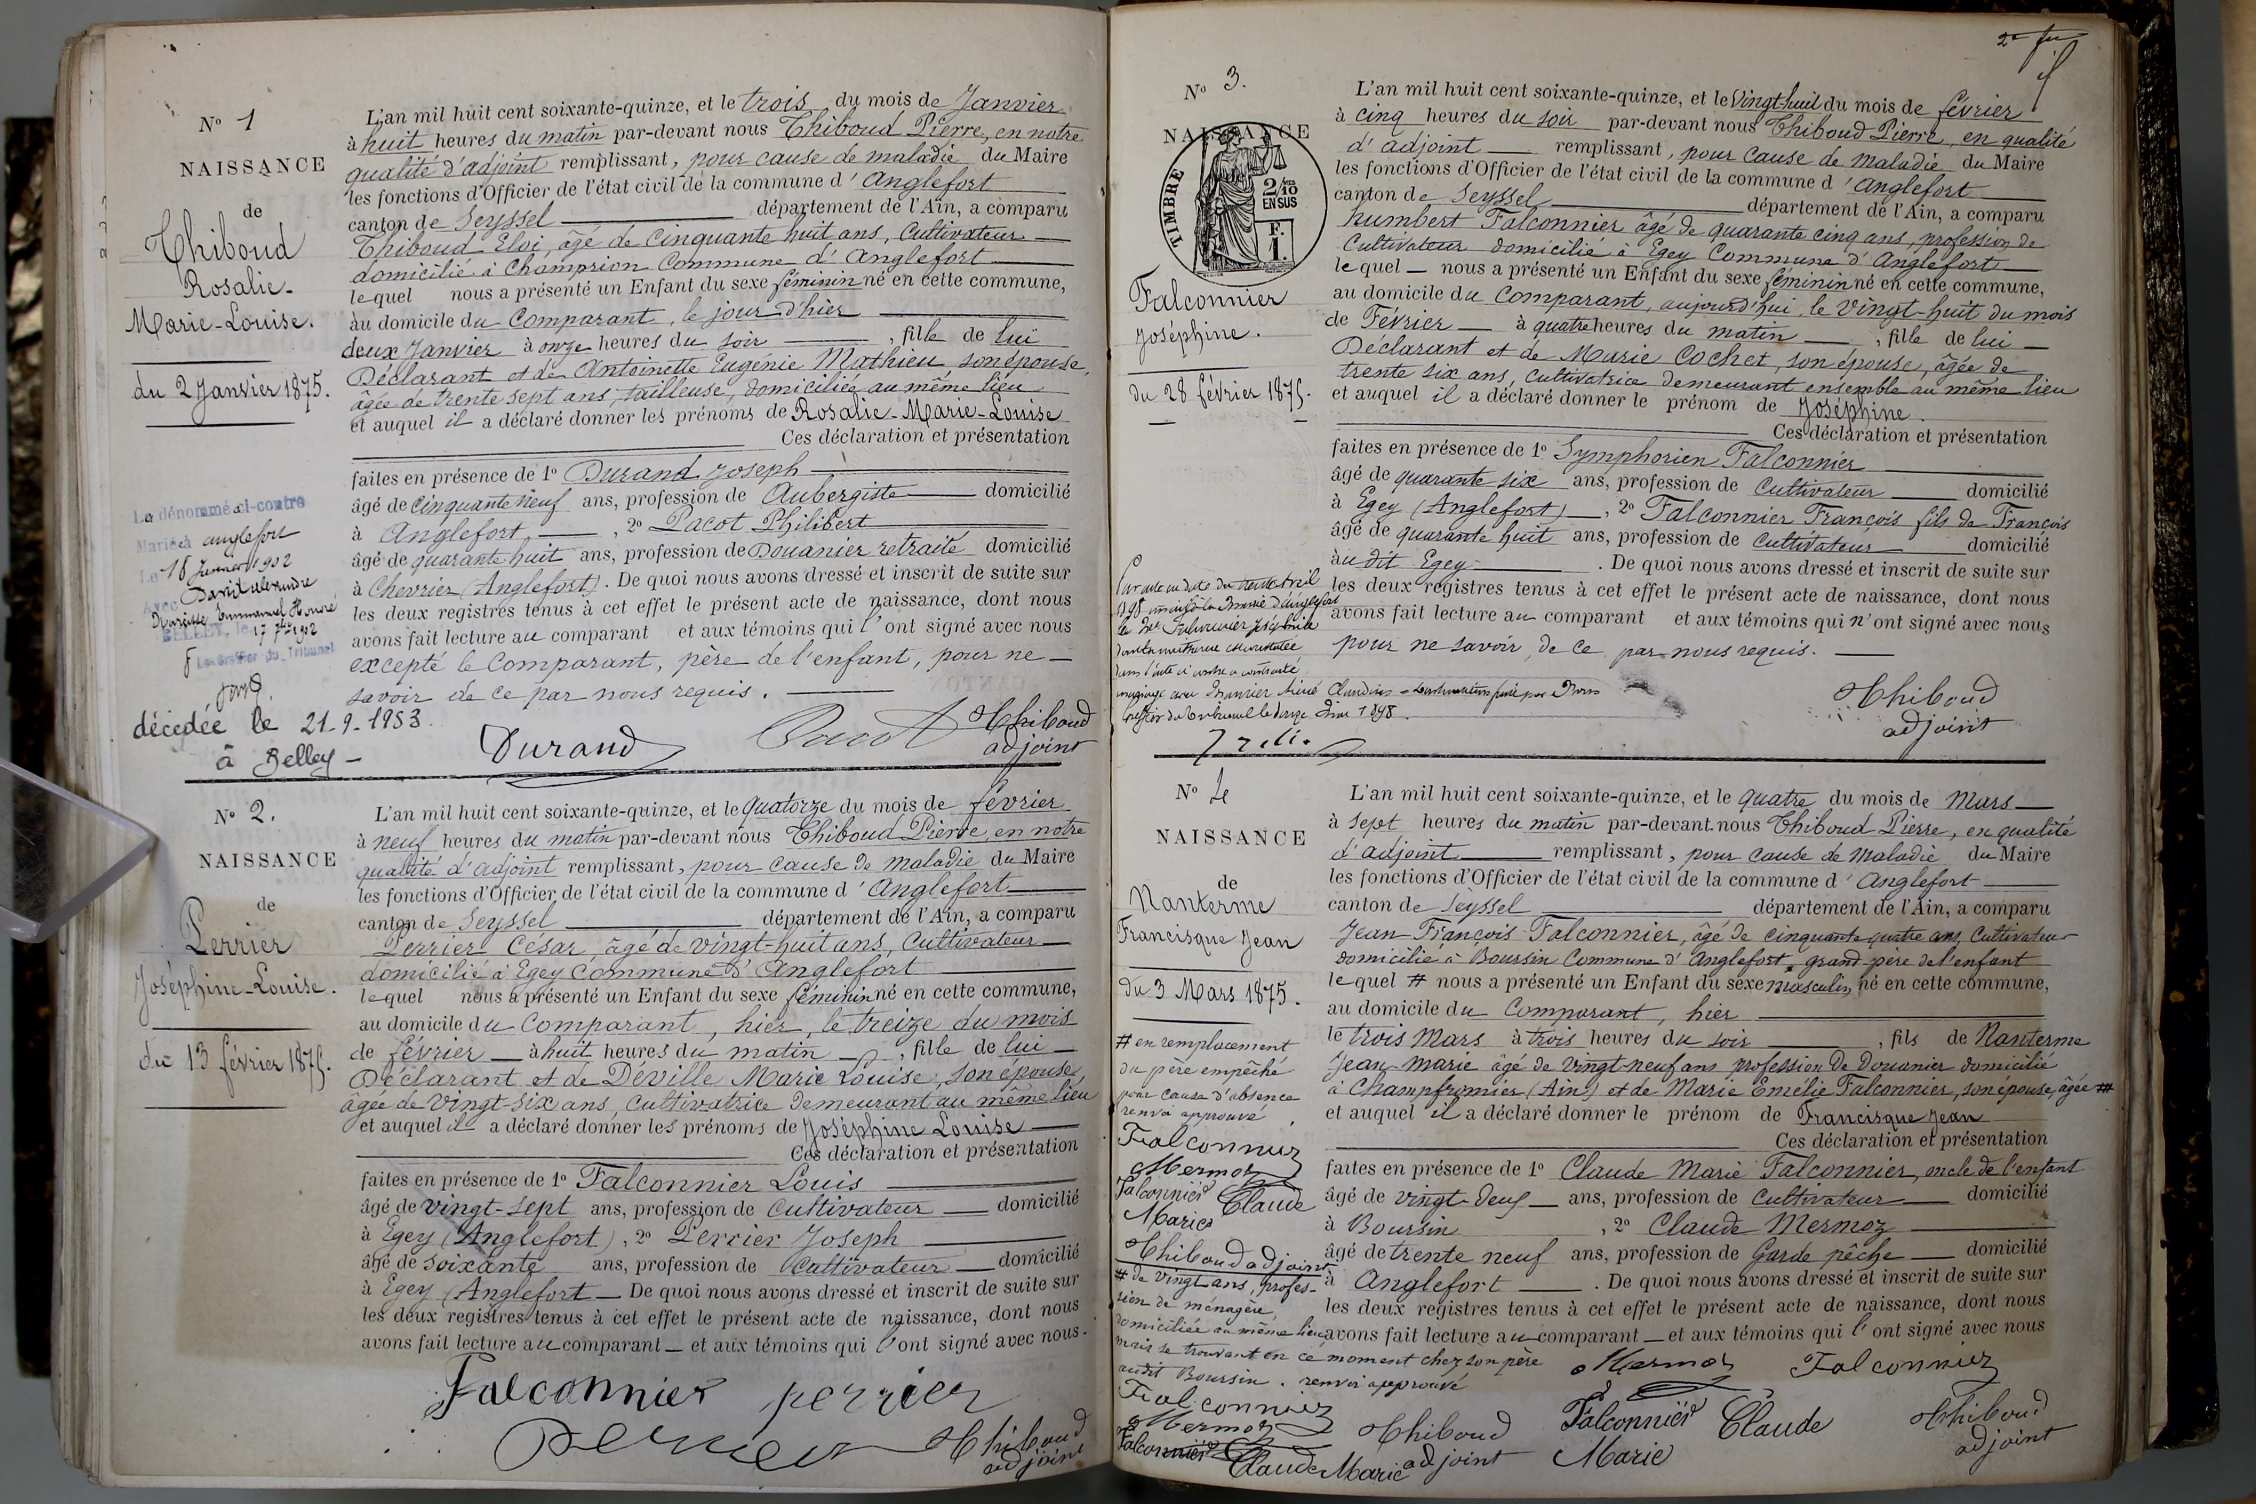 N° 1
NAISSANCE
de
Thiboud
Rosalie-
Marie-Louise.
du 2 Janvier 1875.
La dénommé ci-contre
Mariée à anglefort
Le 18 Janvier 1902
Avec David alexandre
Narcisse Emmanuel Honoré
BELLEY, le 17 7bre 1902
Le Greffier du Tribunal
décédée le 21-9-1953
à Belley -
L'an mil huit cent soixante-quinze, et le trois du mois de Janvier
à huit heures du matin par-devant nous Thiboud Pierre, en notre
qualité d'adjoint remplissant, pour cause de maladie du Maire
les fonctions d'Officier de l'état civil de la commune d'Anglefort
canton de Seyssel département de l'Ain, a comparu
Thiboud Eloi, âgé de Cinquante huit ans, Cultivateur
domicilié à Champrion Commune d'Anglefort
lequel nous a présenté un Enfant du sexe féminin né en cette commune,
au domicile du Comparant, le jour d'hier
deux Janvier à onze heures du soir, fille de lui
Déclarant et de Antoinette Eugénie Mathieu son épouse,
âgée de trente sept ans, tailleuse, domiciliée au même lieu
et auquel il a déclaré donner les prénoms de Rosalie-Marie-Louise
Ces déclaration et présentation
faites en présence de 1° Durand Joseph
âgé de cinquante neuf ans, profession de Aubergiste domicilié
à Anglefort, 2° Pacot Philibert
âgé de quarante huit ans, profession de Douanier retraité domicilié
à Chevrier (Anglefort). De quoi nous avons dressé et inscrit de suite sur
les deux registres tenus à cet effet le présent acte de naissance, dont nous
avons fait lecture au comparant et aux témoins qui l'ont signé avec nous
excepté le Comparant, père de l'enfant, pour ne
savoir de ce par nous requis.
Durand Pacot Thiboud
adjoint
N° 2.
NAISSANCE
de
Perrier
Joséphine-Louise.
du 13 février 1875.
L'an mil huit cent soixante-quinze, et le quatorze du mois de février
à neuf heures du matin par-devant nous Thiboud Pierre, en notre
qualité d'adjoint remplissant, pour cause de maladie du Maire
les fonctions d'Officier de l'état civil de la commune d'Anglefort
canton de Seyssel département de l'Ain, a comparu
Perrier César, âgé de vingt-huit ans, Cultivateur
domicilié à Egey Commune d'Anglefort
lequel nous a présenté un Enfant du sexe féminin né en cette commune,
au domicile du Comparant, hier, le treize du mois
de février à huit heures du matin, fille de lui
Déclarant et de Déville Marie Louise, son épouse,
âgée de vingt-six ans, Cultivatrice demeurant au même lieu
et auquel il a déclaré donner les prénoms de Joséphine Louise
Ces déclaration et présentation
faites en présence de 1° Falconnier Louis
âgé de vingt-sept ans, profession de Cultivateur domicilié
à Egey (Anglefort), 2° Perrier Joseph
âgé de soixante ans, profession de Cultivateur domicilié
à Egey (Anglefort De quoi nous avons dressé et inscrit de suite sur
les deux registres tenus à cet effet le présent acte de naissance, dont nous
avons fait lecture au comparant et aux témoins qui l'ont signé avec nous.
Falconnier perrier
Perrier Thiboud
adjoint
2e fu
N° 3.
NAISSANCE
TIMBRE
2/10
EN SUS
F.
1.
Falconnier
Joséphine.
du 28 février 1875.
Par acte en date du trente avril
1898 inscrit à la Mairie d'anglefort
la Dlle Falconnier Joséphine
dont la naissance est constatée
dans l'acte ci contre a contracté
mariage avec
Greffier du Tribunal le douze 1898.
L'an mil huit cent soixante-quinze, et le vingt-huit du mois de février
à cinq heures du soir par-devant nous Thiboud Pierre, en qualité
d'adjoint remplissant, pour cause de maladie du Maire
les fonctions d'Officier de l'état civil de la commune d'Anglefort
canton de Seyssel département de l'Ain, a comparu
humbert Falconnier âgé de quarante cinq ans, profession de
Cultivateur domicilié à Egey Commune d'Anglefort
lequel nous a présenté un Enfant du sexe féminin né en cette commune,
au domicile du Comparant, aujourd'hui, le vingt-huit du mois
de Février à quatre heures du matin, fille de lui
Déclarant et de Marie Cochet, son épouse, âgée de
trente six ans, Cultivatrice demeurant ensemble au même lieu
et auquel il a déclaré donner le prénom de Joséphine.
Ces déclaration et présentation
faites en présence de 1° Symphorien Falconnier
âgé de quarante six ans, profession de Cultivateur domicilié
à Egey (Anglefort), 2° Falconnier François fils de François
âgé de quarante huit ans, profession de Cultivateur domicilié
au dit Egey. De quoi nous avons dressé et inscrit de suite sur
les deux registres tenus à cet effet le présent acte de naissance, dont nous
avons fait lecture au comparant et aux témoins qui n'ont signé avec nous
pour ne savoir, de ce par nous requis.
Thiboud
adjoint
N° 4
NAISSANCE
de
Nanterme
Francisque Jean
du 3 Mars 1875.
# en remplacement
du père empêché
pour cause d'absence
renvoi approuvé
Falconnier
Mermoz
Falconnier Claude
Marie
Thiboud adjoint
# de vingt ans, profes-
sion de ménagère,
domiciliée au même lieu
mais se trouvant en ce moment chez son père
audit Boursin. renvoi approuvé
Falconnier
Mermoz
Falconnier Claude Marie
L'an mil huit cent soixante-quinze, et le quatre du mois de Mars
à sept heures du matin par-devant nous Thiboud Pierre, en qualité
d'adjoint remplissant, pour cause de maladie du Maire
les fonctions d'Officier de l'état civil de la commune d'Anglefort
canton de Seyssel département de l'Ain, a comparu
Jean François Falconnier, âgé de cinquante quatre ans, Cultivateur
domicilié à Boursin Commune d'Anglefort, grand-père de l'enfant
lequel # nous a présenté un Enfant du sexe masculin né en cette commune,
au domicile du Comparant, hier
le trois Mars à trois heures du soir, fils de Nanterme
Jean-Marie âgé de vingt-neuf ans profession de Douanier domicilié
à Champfromier (Ain) et de Marie Emélie Falconnier, son épouse, âgée #
et auquel il a déclaré donner le prénom de Francisque Jean
Ces déclaration et présentation
faites en présence de 1° Claude Marie Falconnier, oncle de l'enfant
âgé de vingt-deux ans, profession de Cultivateur domicilié
à Boursin, 2° Claude Mermoz
âgé de trente neuf ans, profession de Garde pêche domicilié
à Anglefort. De quoi nous avons dressé et inscrit de suite sur
les deux registres tenus à cet effet le présent acte de naissance, dont nous
avons fait lecture au comparant et aux témoins qui l'ont signé avec nous
Mermoz Falconnier
Thiboud adjoint Falconnier Claude Marie Thiboud adjoint